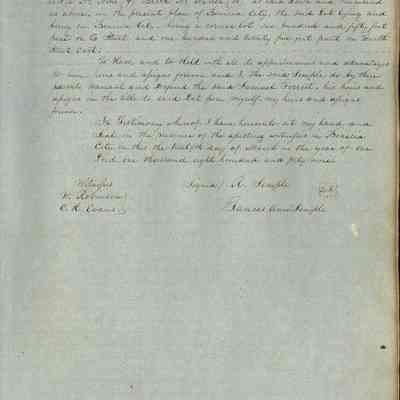 as shown in the present plan of Benicia City, the said Lot lying and
being in Benicia City, being a corner lot one hundred and fifty feet
front on H Street and one hundred and twenty five feet front on Fourth
Street East.
To Have and to Hold with all its appurtenances and advantages
to him heirs and assigns forever and I, the said Semple do by these
presents warrant and defend the said Samuel his heirs and
assigns in the title to said Lot from myself my heirs and assigns
forever.
In Testimony whereof I have hereunto set my hand and
Seal in the presence of the attesting witnesses in Benicia
City on this the twelfth day of March in the year of our
Lord one thousand eight hundred and fifty
Witness
W. Robinson
C. R. Evans
Signed R. Semple
Frances Ann Semple